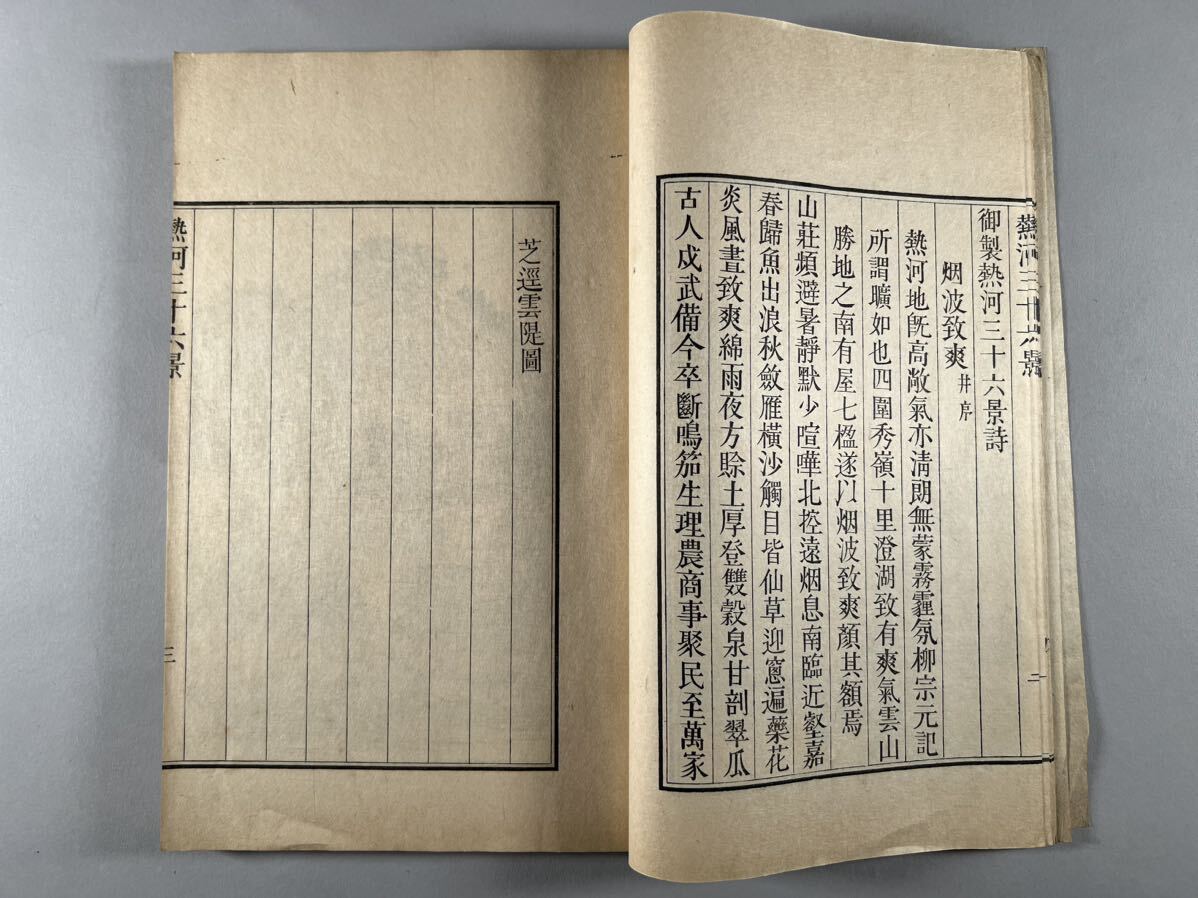 熱河三十六景
二
御製熱河三十六景詩
烟波致爽 幷序
熱河地旣高敞氣亦淸朗無蒙霧霾氛柳宗元記
所謂曠如也四圍秀嶺十里澄湖致有爽氣雲山
勝地之南有屋七楹遂以烟波致爽顏其額焉
山莊頻避暑靜默少喧嘩北控遠烟息南臨近壑嘉
春歸魚出浪秋斂雁橫沙觸目皆仙草迎窻遍藥花
炎風晝致爽綿雨夜方賒土厚登雙穀泉甘剖翠瓜
古人戍武備今卒斷鳴笳生理農商事聚民至萬家
芝逕雲隄圖
熱河三十六景
三